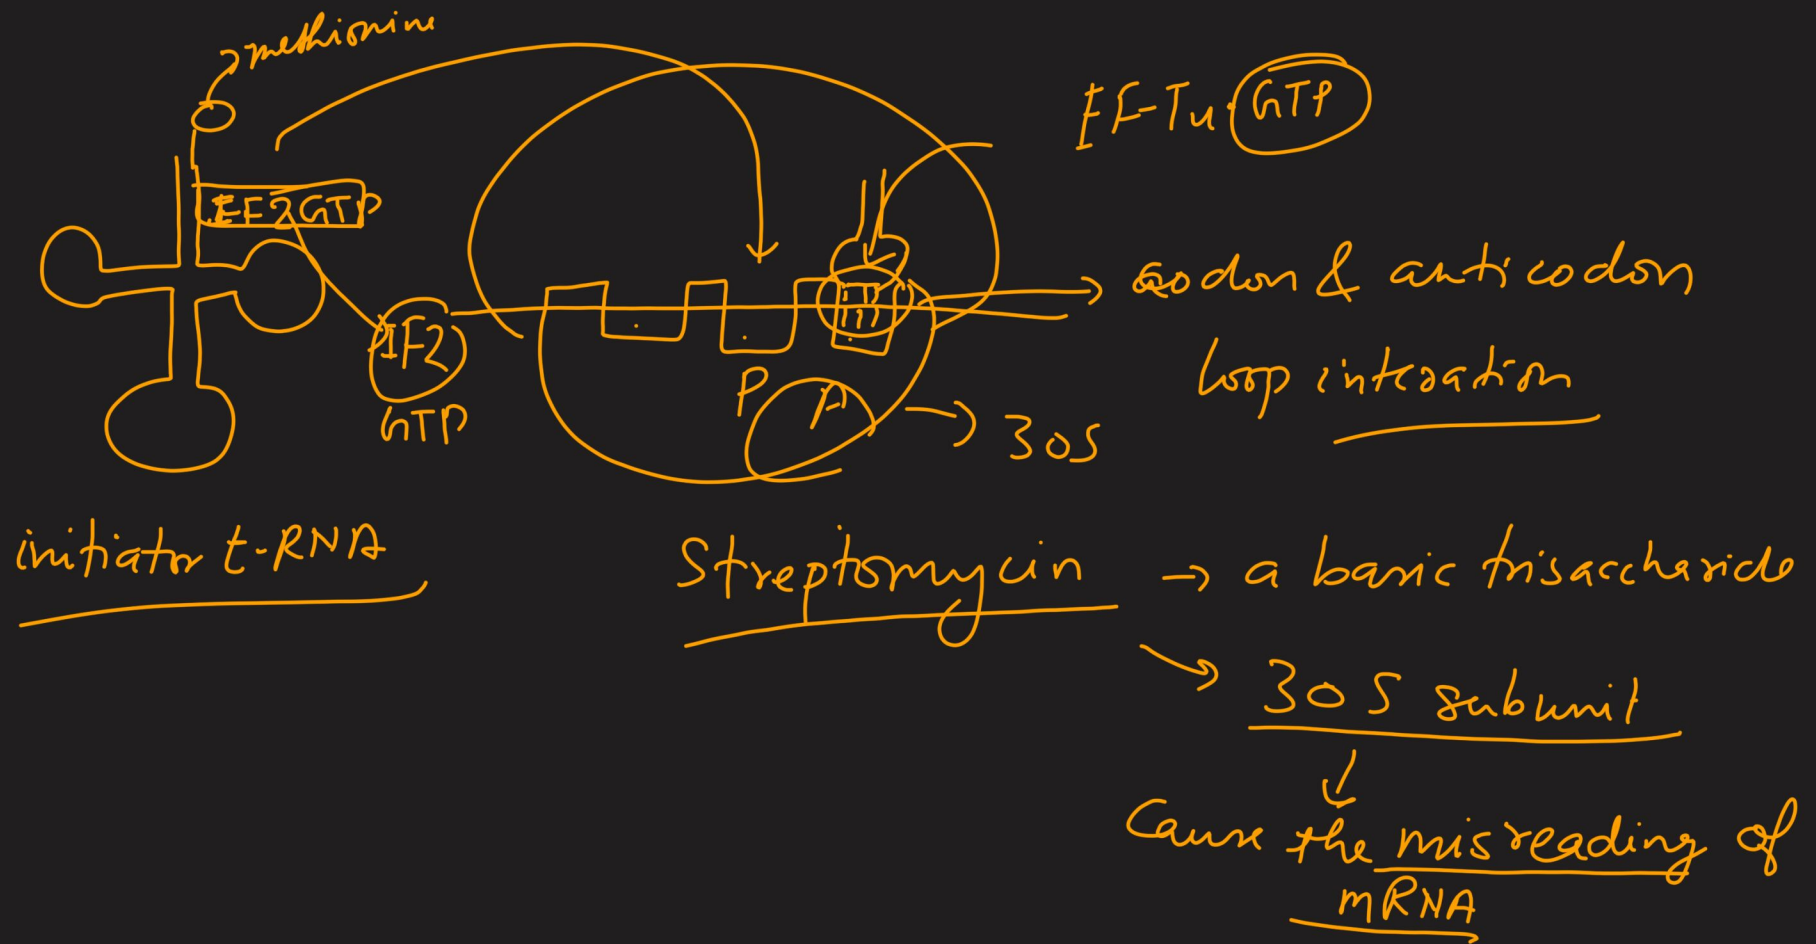 methionine
EF2GTP
IF2
GTP
initiator t-RNA
EF-Tu.GTP
codon & anticodon
loop interation
P
A
30S
Streptomycin → a basic trisaccharide
30S subunit
Cause the misreading of
mRNA